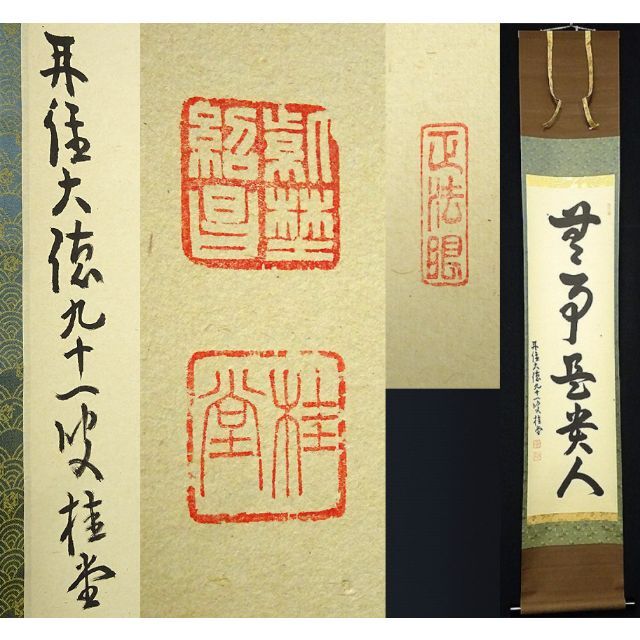 再住大徳九十一叟桂堂
紫埜
紹昌
桂堂
正法眼
無事是貴人
再住大徳九十一叟桂堂